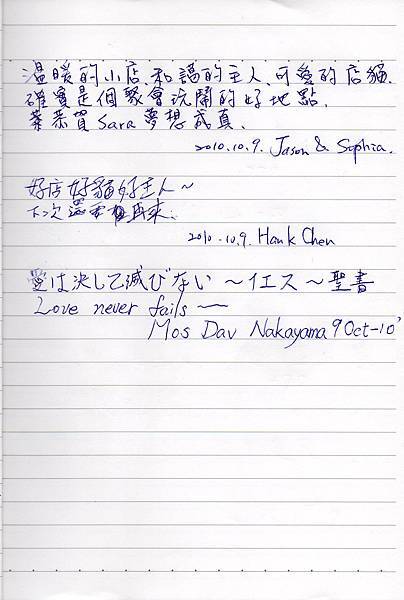 溫暖的小店、和藹的主人、可愛的店貓、
確實是個聚會玩鬧的好地點、
恭賀Sara夢想成真、
2010.10.9. Jason & Sophia.
好店好貓好主人～
下次還要再來、
2010.10.9. Hank Chen
愛は決して滅びない～イエス～聖書
Love never fails ～
Mos Dav Nakayama 9 Oct-10'